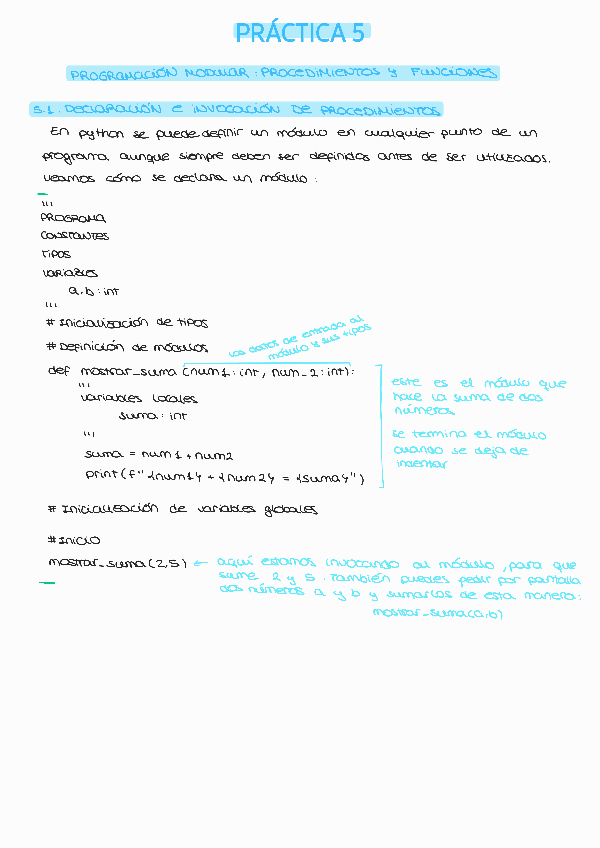 PRÁCTICA 5
PROGRAMACIÓN MODULAR: PROCEDIMIENTOS Y FUNCIONES
5.1. DECLARACIÓN E INVOCACIÓN DE PROCEDIMIENTOS
En python se puede definir un módulo en cualquier punto de un
programa, aunque siempre deben ser definidos antes de ser utilizados.
Veamos cómo se declara un módulo:
'''
PROGRAMA
CONSTANTES
TIPOS
VARIABLES
a,b: int
'''
# Inicialización de tipos
# Definición de módulos
los datos de entrada al
módulo y sus tipos
def mostrar_suma (num1: int, num_2: int):
'''
variables locales
suma: int
'''
suma = num1 + num2
print(f"{num1} + {num2} = {suma}")
este es el módulo que
hace la suma de dos
números
se termina el módulo
cuando se deja de
indentar
# Inicialización de variables globales
# Inicio
mostrar_suma(2,5) ← aquí estamos invocando al módulo, para que
sume 2 y 5. También puedes pedir por pantalla
dos números a y b y sumarlos de esta manera:
mostrar_suma(a,b)